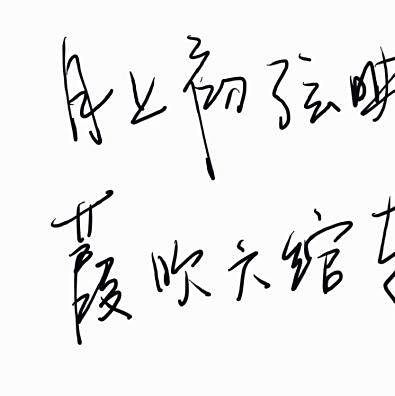 月上初弦映
葭吹六绾